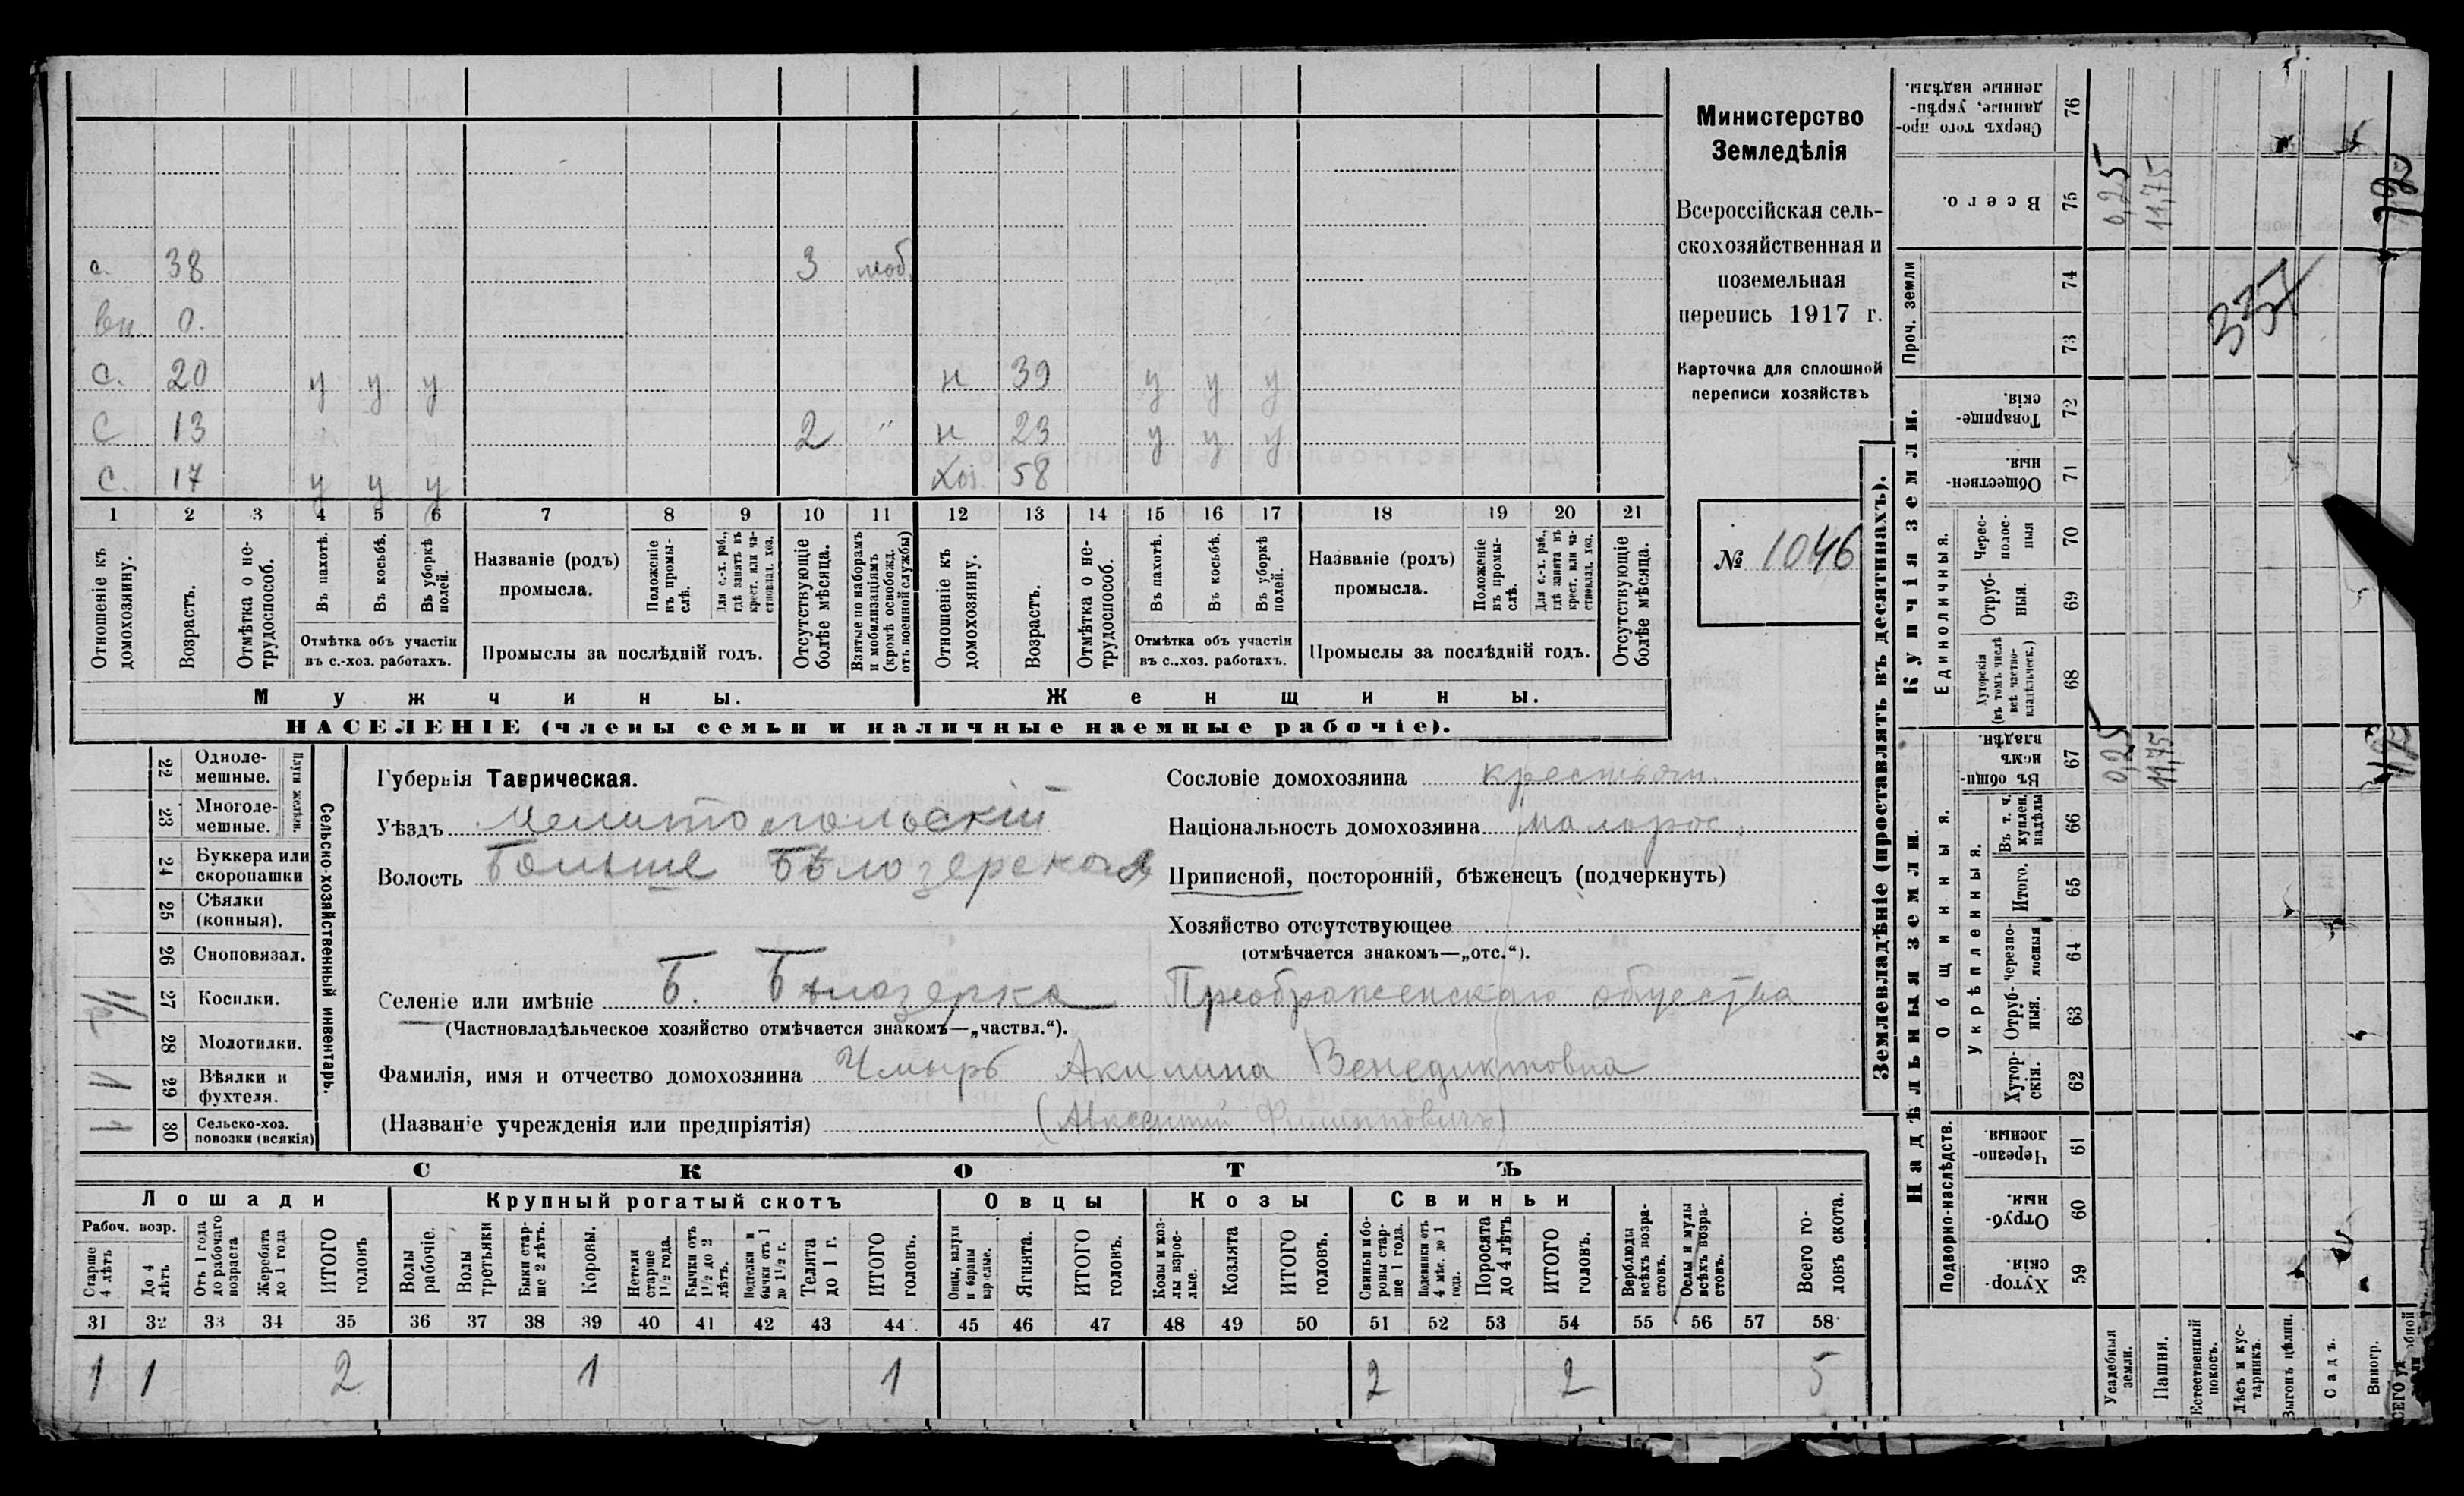 с. 38 3 моб.
вн. 0.
с. 20 у у у н 39 у у у
с 13 2 " н 23 у у у
с. 17 у у у хоз. 58
1 2 3 4 5 6 7 8 9 10 11 12 13 14 15 16 17 18 19 20 21
Отношеніе къ домохозяину.
Возрастъ.
Отмѣтка о нетрудоспособ.
Въ пахотѣ.
Въ косьбѣ.
Въ уборкѣ полей.
Отмѣтка объ участіи
въ с.-хоз. работахъ.
Названіе (родъ)
промысла.
Положеніе въ промыслѣ.
Для с.-х. раб., гдѣ занятъ въ крест. или частновлад. хоз.
Промыслы за послѣдній годъ.
Отсутствующіе болѣе мѣсяца.
Взятые по наборамъ и мобилизаціямъ (кромѣ освобожд. отъ военной службы)
Отношеніе къ домохозяину.
Возрастъ.
Отмѣтка о нетрудоспособ.
Въ пахотѣ.
Въ косьбѣ.
Въ уборкѣ полей.
Отмѣтка объ участіи
въ с..хоз. работахъ.
Названіе (родъ)
промысла.
Положеніе въ промыслѣ.
Для с.-х. раб., гдѣ занята въ крест. или частновлад. хоз.
Промыслы за послѣдній годъ.
Отсутствующіе болѣе мѣсяца.
Мужчины.
Женщины.
НАСЕЛЕНІЕ (члены семьи и наличные наемные рабочіе).
Министерство
Земледѣлія
Всероссійская сель-
скохозяйственная и
поземельная
перепись 1917 г.
Карточка для сплошной
переписи хозяйствъ
№ 1046
Сельско-хозяйственный инвентарь.
Плуги желѣзн.
22 Одноле-
мешные.
23 Многоле-
мешные.
24 Буккера или
скоропашки
25 Сѣялки
(конныя).
26 Сноповязал.
27 Косилки.
28 Молотилки.
29 Вѣялки и
фухтеля.
30 Сельско-хоз.
повозки (всякія)
Губернія Таврическая.
Уѣздъ Мелитопольскій
Волость Больше Бѣлозерская
Селеніе или имѣніе Б. Бѣлозерка Преображенскаго общества
(Частновладѣльческое хозяйство отмѣчается знакомъ—„частвл.“).
Фамилія, имя и отчество домохозяина Чмырь Акилина Венедиктовна
(Названіе учрежденія или предпріятія) (Авксентій Филипповичъ)
Сословіе домохозяина крестьян.
Національность домохозяина малорос.
Приписной, посторонній, бѣженецъ (подчеркнуть)
Хозяйство отсутствующее
(отмѣчается знакомъ—„отс.“).
СКОТЪ
Лошади
Крупный рогатый скотъ
Овцы
Козы
Свиньи
Рабоч. возр.
Старше 4 лѣтъ
До 4 лѣтъ
Отъ 1 года до рабочаго возраста
Жеребята до 1 года
ИТОГО головъ
Волы рабочіе.
Волы третьяки
Быки старше 2 лѣтъ.
Коровы.
Нетели старше 1½ года.
Бычки отъ 1½ до 2 лѣтъ.
Подтелки и бычки отъ 1 до 1½ г.
Телята до 1 г.
ИТОГО головъ.
Овцы, валухи и бараны взрослые.
Ягнята.
ИТОГО головъ.
Козы и козлы взрослые.
Козлята
ИТОГО головъ.
Свиньи и боровы старше 1 года.
Подсвинки отъ 4 мѣс. до 1 года.
Поросята до 4 лѣтъ
ИТОГО головъ.
Верблюды всѣхъ возрастовъ.
Ослы и мулы всѣхъ возрастовъ.
Всего головъ скота.
31 32 33 34 35 36 37 38 39 40 41 42 43 44 45 46 47 48 49 50 51 52 53 54 55 56 57 58
1 1 2 1 1 2 2 5
Землевладѣніе (проставлять въ десятинахъ).
Сверхъ того проданные, укрѣпленные надѣлы. 76
Всего. 75
0,25
11,75
Проч. земли
74
73
337
Купчія земли.
Товарищескія. 72
Общественныя. 71
Единоличныя.
Чересполосныя 70
Отрубныя. 69
Хуторскія (въ томъ числѣ всѣ частновладѣльческ.) 68
Надѣльныя земли.
Общинныя.
Въ общиномъ владѣн. 67
0,25
11,75
Въ т. ч. куплен. надѣлы 66
Укрѣпленныя.
Итого. 65
Черезполосныя 64
Отрубныя. 63
Хуторскія. 62
Подворно-наслѣдств.
Черезполосныя. 61
Отрубныя. 60
Хуторскія. 59
Усадебныя земли.
Пашня.
Естественный покосъ.
Лѣсъ и кустарникъ.
Выгонъ цѣлин.
Садъ.
Виногр.